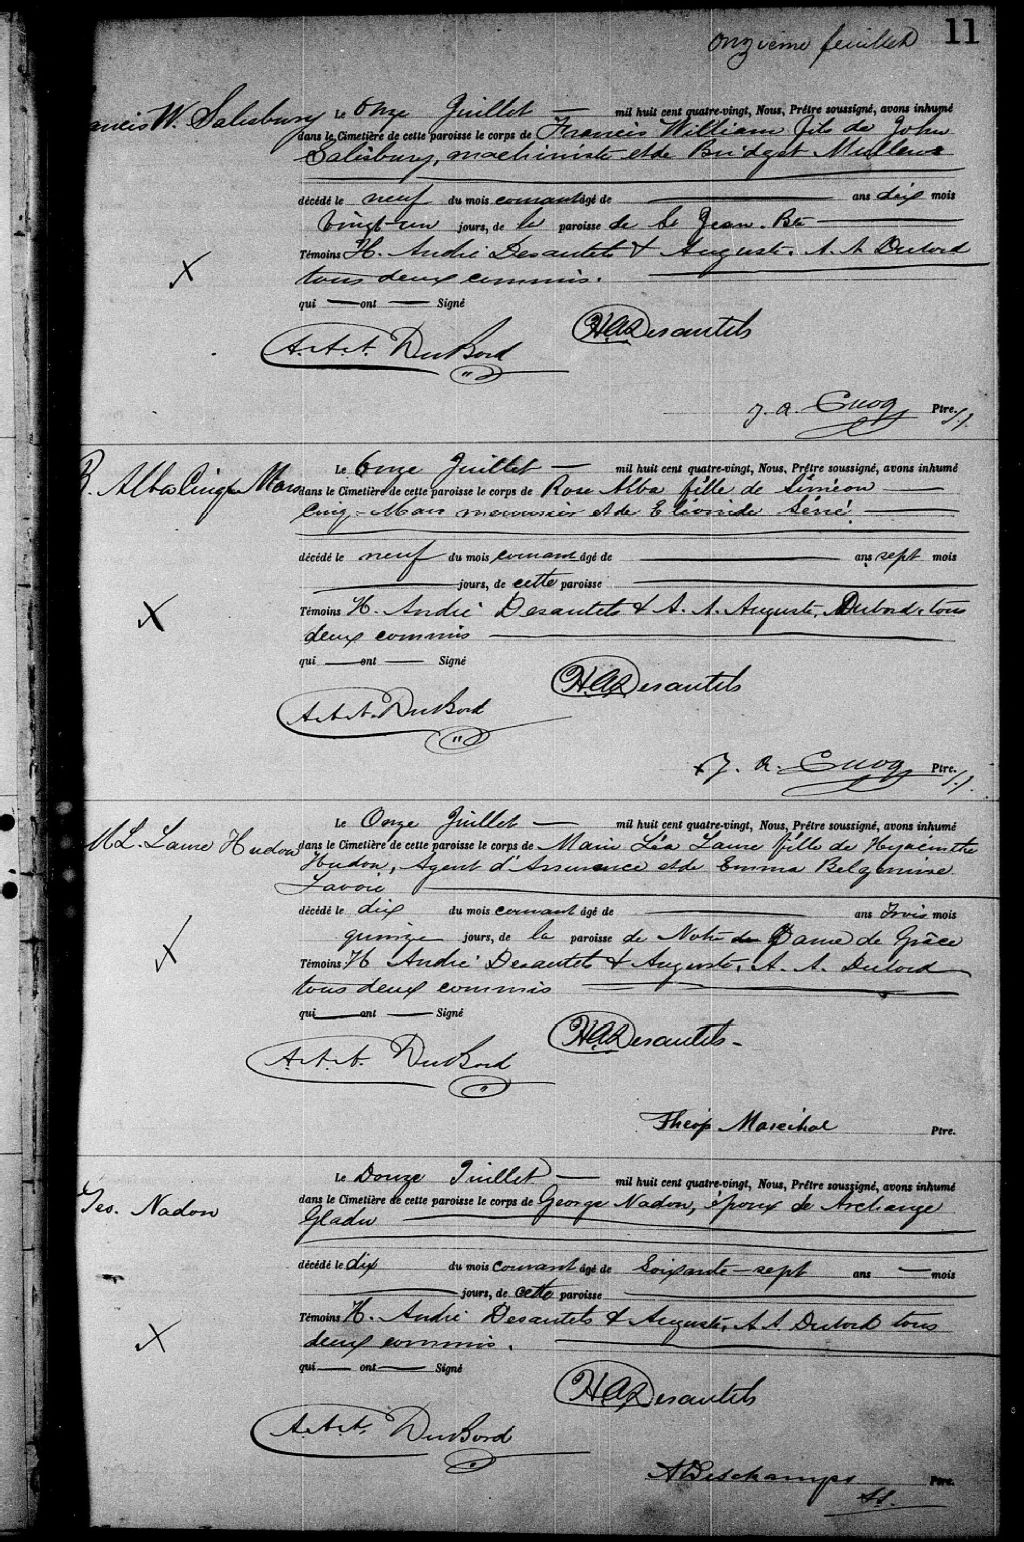 Onzieme feuillet 11
ancis W. Salisbury
Le Onze Juillet — mil huit cent quatre-vingt, Nous, Prêtre soussigné, avons inhumé
dans le Cimetière de cette paroisse le corps de Francis William fils de John
Salisbury, machiniste et de Bridget Mullens
décédé le neuf du mois courant âgé de — ans dix mois
vingt-un jours, de la paroisse de St Jean. Bte
Témoins H. André Desautels & Auguste. A. A. Dubord
tous deux commis.
qui — ont — Signé
H.A.Desautels
A.A.A. DuBord
J. A. Cuoq Ptre. S.S.
R. Alba Cinq Mars
Le Onze Juillet — mil huit cent quatre-vingt, Nous, Prêtre soussigné, avons inhumé
dans le Cimetière de cette paroisse le corps de Rose Alba fille de Siméon —
Cinq-Mars menuisier et de Eléonide Séné —
décédé le neuf du mois courant âgé de — ans sept mois
— jours, de cette paroisse
Témoins H. André Desautels & A. A. Auguste, Dubord. tous
deux commis
qui — ont — Signé
H.A.Desautels
A.A.A. DuBord
J. A. Cuoq Ptre. S.S.
M L. Laure Hudon
Le Onze Juillet — mil huit cent quatre-vingt, Nous, Prêtre soussigné, avons inhumé
dans le Cimetière de cette paroisse le corps de Marie Léa Laure fille de Hyacinthe
Hudon, Agent d'Assurance et de Emma
Lavoie
décédé le dix du mois courant âgé de — ans trois mois
quinze jours, de la paroisse de Notre Dame de Grâce
Témoins H André Desautels & Auguste. A. A. Dubord
tous deux commis
qui — ont — Signé
H.A.Desautels
A.A.A. DuBord
Théop Maréchal Ptre.
Geo. Nadon
Le Douze Juillet — mil huit cent quatre-vingt, Nous, Prêtre soussigné, avons inhumé
dans le Cimetière de cette paroisse le corps de George Nadon, époux de Archange
Gladu
décédé le dix du mois courant âgé de Soixante-sept ans — mois
— jours, de cette paroisse
Témoins H. André Desautels & Auguste, A A Dubord tous
deux commis.
qui — ont — Signé
H.A.Desautels
A.A.A. DuBord
A Deschamps Ptre.
S.S.